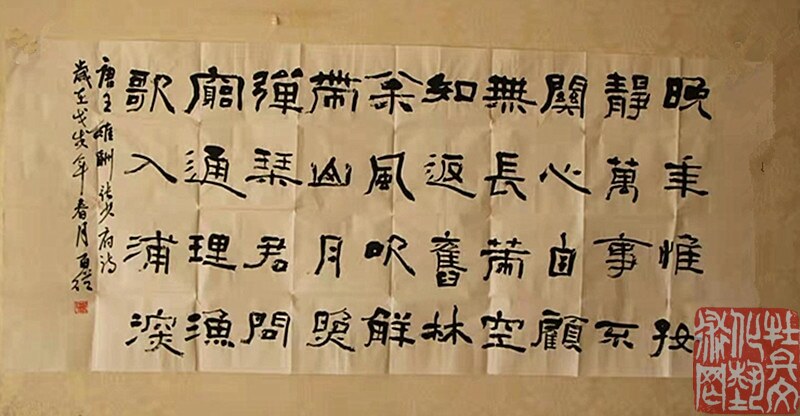 晚年惟好
靜萬事不
關心自顧
無長策空
知返舊林
枀風吹解
帶山月照
彈琴君問
窮通理漁
歌入浦深
唐王維酬張少府詩
歲在戊戌年春月